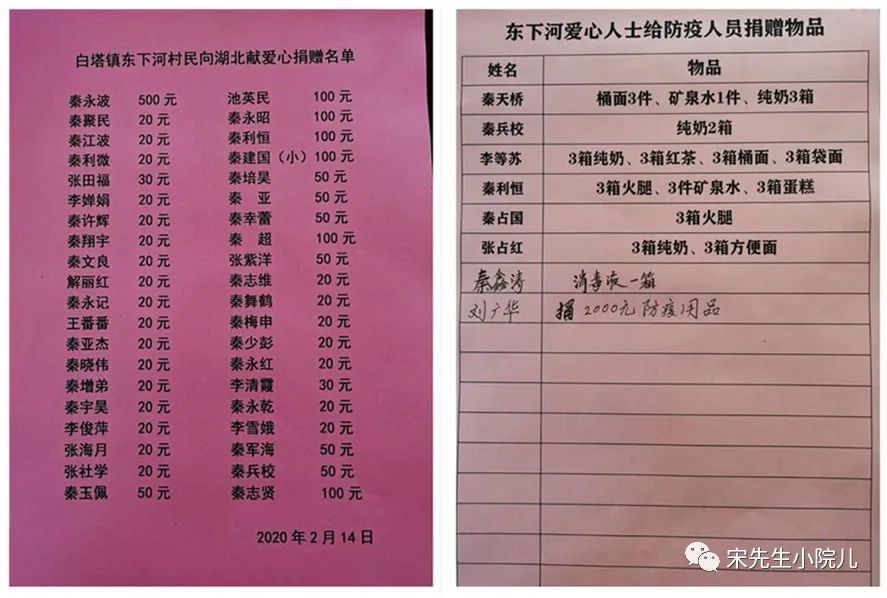 白塔镇东下河村民向湖北献爱心捐赠名单
秦永波 500元 池英民 100元
秦聚民 20元 秦永昭 100元
秦江波 20元 秦利恒 100元
秦利微 20元 秦建国（小）100元
张田福 30元 秦培昊 50元
李婵娟 20元 秦 亚 50元
秦许辉 20元 秦幸蕾 50元
秦翔宇 20元 秦 超 100元
秦文良 20元 张紫洋 50元
解丽红 20元 秦志维 20元
秦永记 20元 秦舞鹤 20元
王番番 20元 秦梅申 20元
秦亚杰 20元 秦少彭 20元
秦晓伟 20元 秦永红 20元
秦增弟 20元 李清霞 30元
秦宇昊 20元 秦永乾 20元
李俊萍 20元 李雪娥 20元
张海月 20元 秦军海 50元
张社学 20元 秦兵校 50元
秦玉佩 50元 秦志贤 100元
2020年2月14日
东下河爱心人士给防疫人员捐赠物品
姓名 物品
秦天桥 桶面3件、矿泉水1件、纯奶3箱
秦兵校 纯奶2箱
李等苏 3箱纯奶、3箱红茶、3箱桶面、3箱袋面
秦利恒 3箱火腿、3件矿泉水、3箱蛋糕
秦占国 3箱火腿
张占红 3箱纯奶、3箱方便面
秦鑫涛 消毒液一箱
刘广华 捐2000元防疫用品
宋先生小院儿